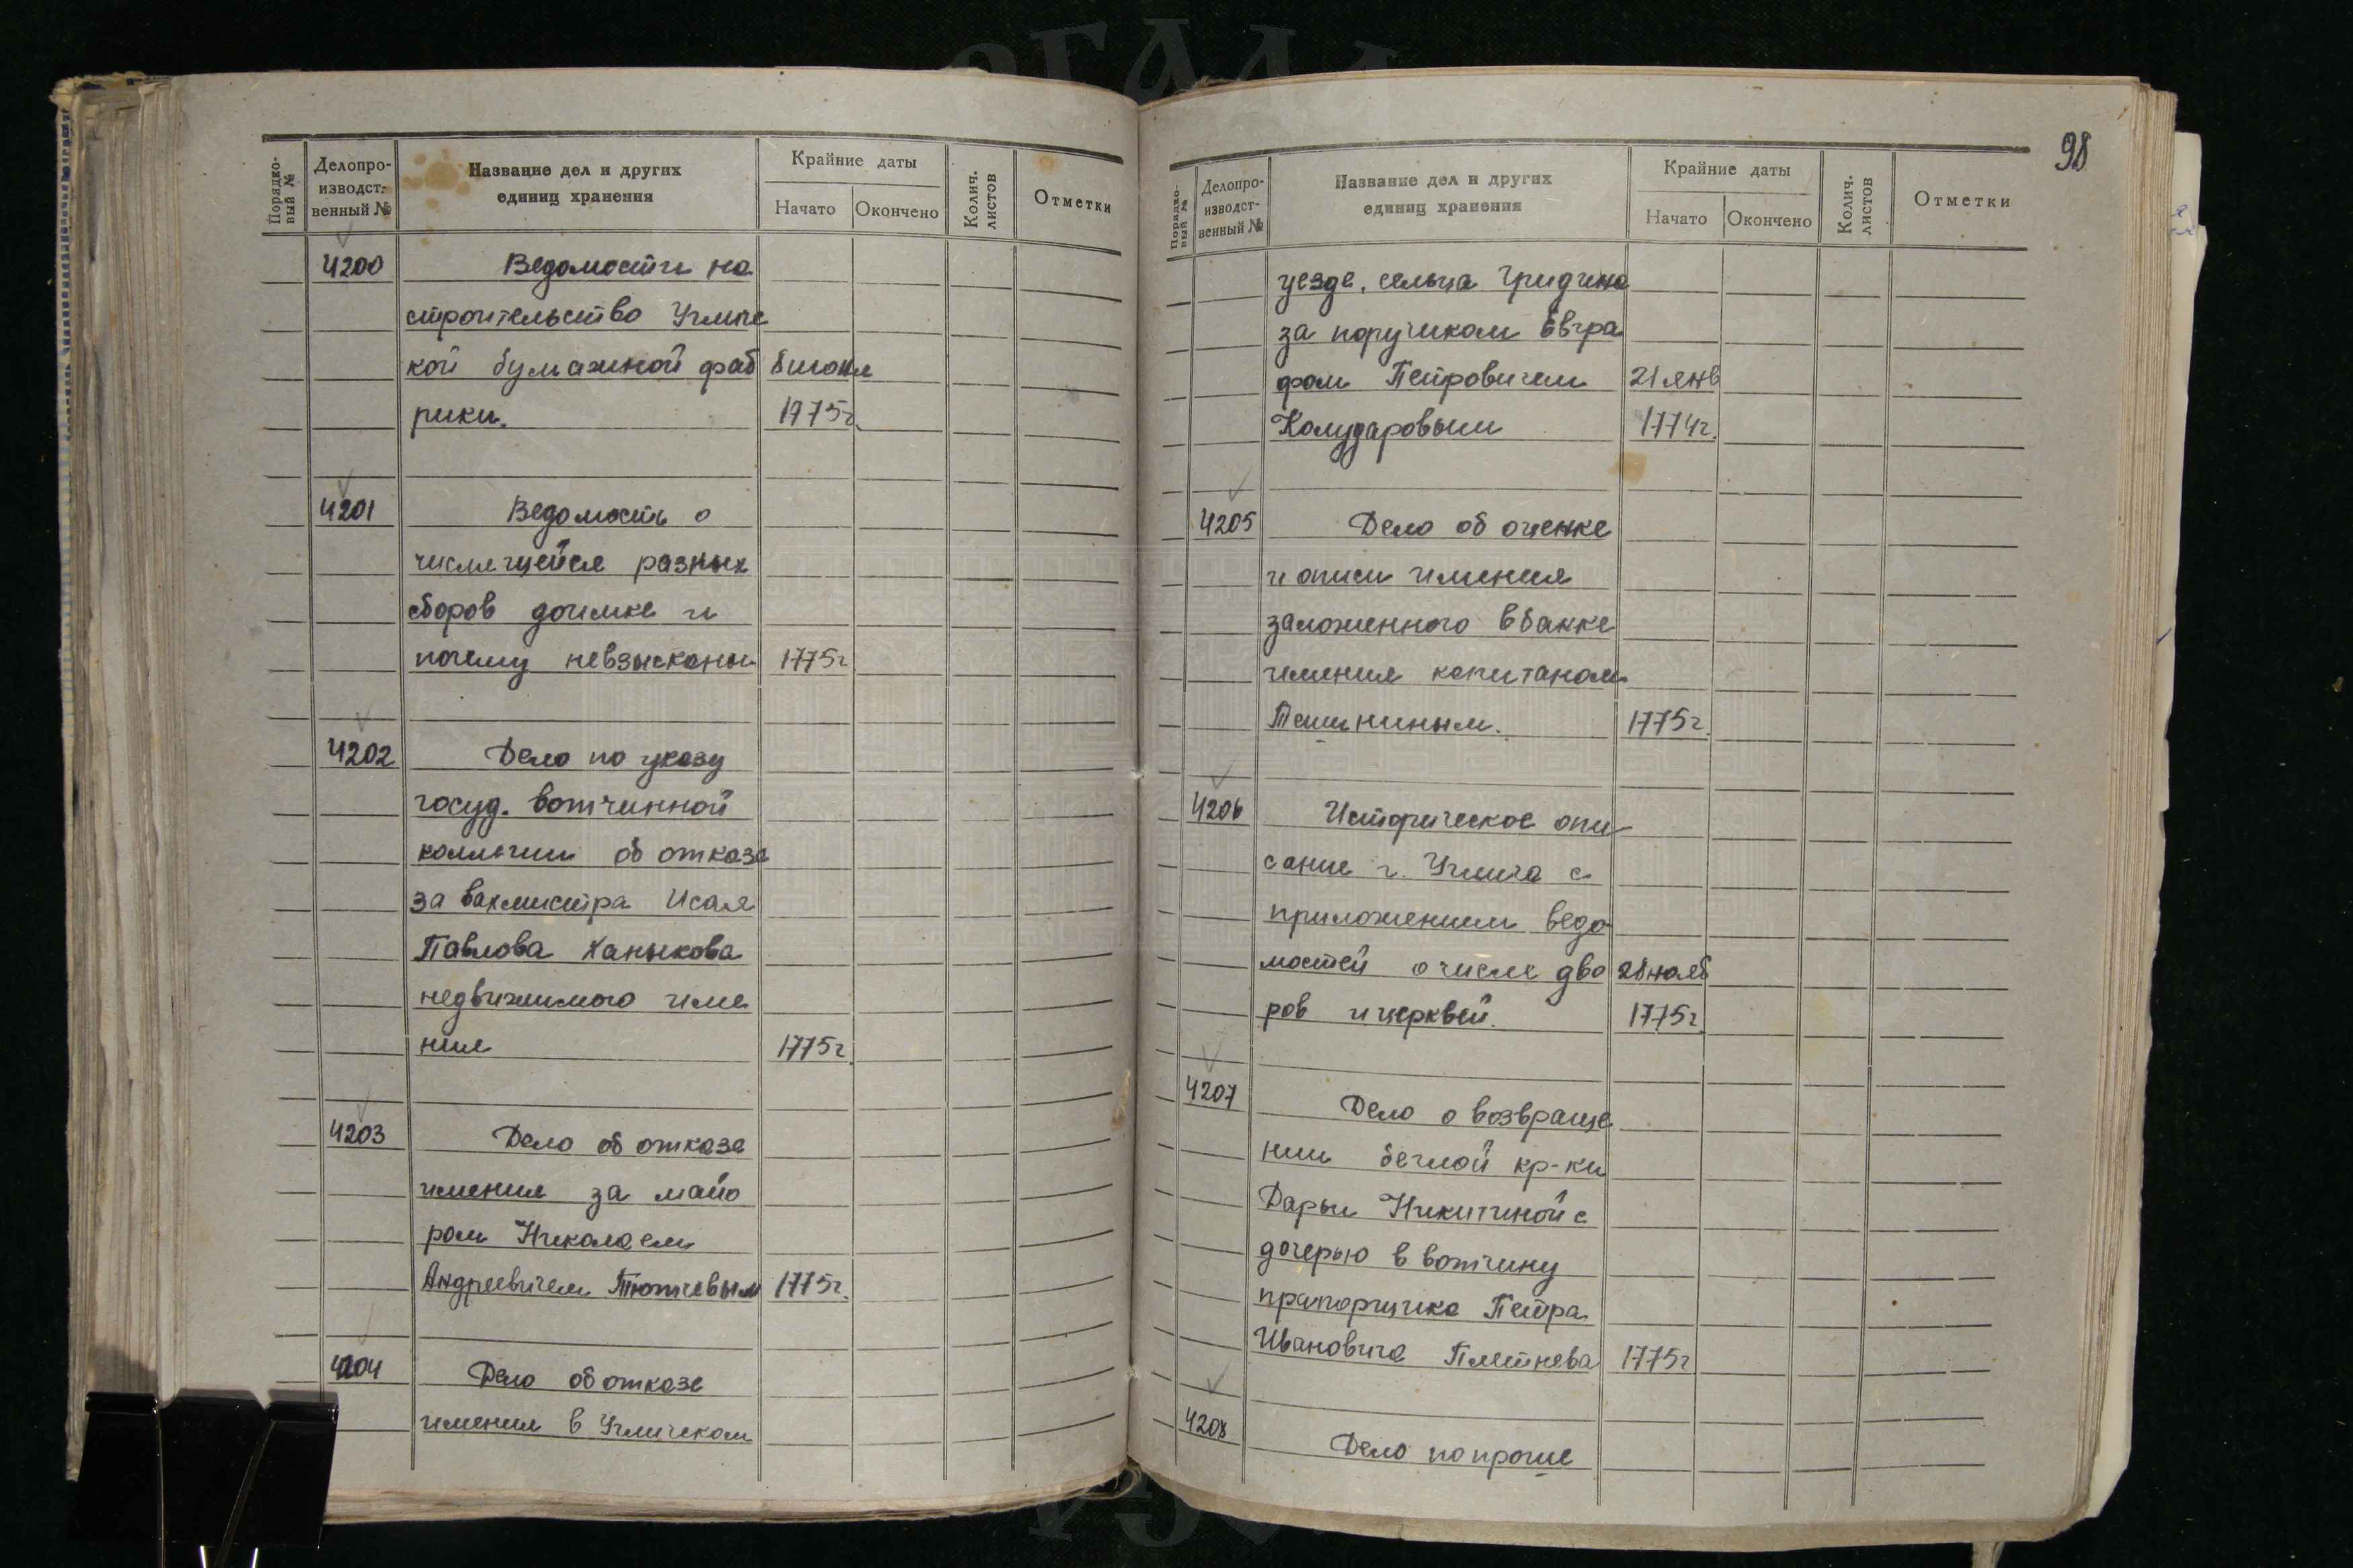 Порядко-
вый №
Делопро-
изводст-
венный №
Название дел и других
единиц хранения
Крайние даты
Начато
Окончено
Колич.
листов
Отметки
4200 Ведомости на
строительство Углич
кой бумажной фаб 8 июня
рики. 1775г.
4201 Ведомость о
числящейся разных
сборов доимке и
почему невзысканы 1775г
4202 Дело по указу
госуд. вотчинной
коллегии об отказе
за вахмистра Исая
Павлова Ханыкова
недвижимого име
ния 1775г.
4203 Дело об отказе
имения за майо
ром Николаем
Андреевичем Тютчевым 1775г.
4204 Дело об отказе
имения в Угличском
98
Порядко-
вый №
Делопро-
изводст-
венный №
Название дел и других
единиц хранения
Крайние даты
Начато
Окончено
Колич.
листов
Отметки
уезде, сельца Гридина
за поручиком Евгра
фом Петровичем 21 янв
Колударовым 1774г.
4205 Дело об оценке
и описи имения
заложенного в банке
имения капитаном
1775г.
4206 Историческое опи
сание г. Углича с
приложением ведо
мостей о числе дво 28 нояб
ров и церквей. 1775г.
4207 Дело о возвраще
нии беглой кр-ки
Дарьи Никитиной с
дочерью в вотчину
прапорщика Петра
Ивановича Плетнева 1775г
4208 Дело по проше